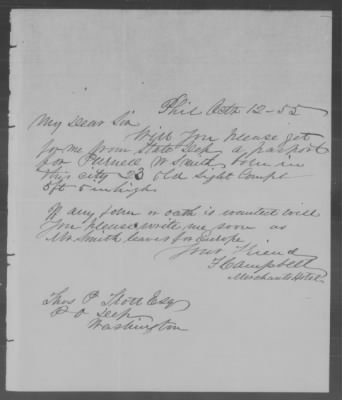 Phil Octr 12-55
My Dear Sir
Will you please get
for me from State Dep a passport
for Purnell W Smith, born in
this city 23 old light Compl
5ft 5 in high
If any form or oath is wanted will
you please write me soon as
Mr. Smith leaves for Europe
Your Friend
Campbell
Merchants Hotel
Thos P Trott Esq
P O Dep
Washington